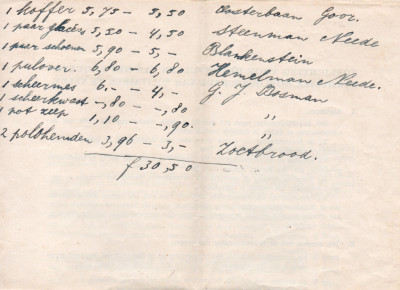 1 koffer 5,75 - 5,50 Oosterbaan Goor.
1 paar glacées 5,50 - 4,50 Steenman Neede
1 paar schoenen 5,90 - 5,- Blankenstein
1 pulover. 6,80 - 6,80 Hemelman Neede.
1 scheermes 6.- - 4,- G. J. Bosman
1 scheerkwast -,80 - -,80 "
1 pot zeep 1,10 - -,90. "
2 polohemden 3,96 - 3,- Zoetbrood.
f 30,50